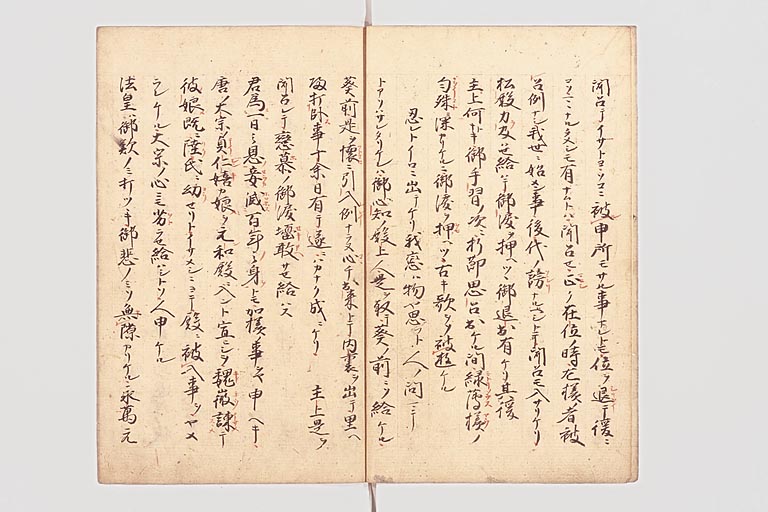 聞召テイサトヨ被申所モサル事ナレトモ位ヲ退テ後ハ
タメシモ有ナムトハ聞召セ正ク在位ノ時左様者被
召例ナシ我世ニ始メム事後代ノ謗ナルヘシトテ聞召モ入サリケリ
松殿力及ハセ給ハテ御涙ヲ押ヘツヽ御退出有ケリ其後
主上何トナキ御手習ノ次ニ折節思召出ケル間緑薄様ノ
匂殊深カリケルニ御涙ヲ押ヘツヽ古キ歌ヲソ被遊ケル
忍レトイロニ出テケリ我恋ハ物ヤ思フト人ノ問マテニ
トアソハシタリケレハ御心知ノ殿上人是ヲ取テ葵ノ前ニソ給ケル
葵前是ヲ懐ニ引入例ナラヌ心チ出来トテ内裏ヲ出テ里ヘ
打臥事十余日有テ遂ニハカナク成ニケリ 主上是ヲ
聞召シテ恋慕ノ御涙堰敢サセ給ハス
君為一日之恩妾滅百年之身トモ加様ノ事ヲヤ申ヘキ
唐ノ大宗ノ貞仁娘ヲ元和殿ニ入ント宣シヲ魏徴諫テ
彼娘既ニ陸氏ニ幼セリトイサメシニヨテ殿ニ被入事ヲヤメ
ラレケル大宗ノ心ニ劣ラセ給ハシトソ人申ケル
法皇ハ御歎ノミ打ツヽキ御悲ノミソ無隙アリケル永萬元